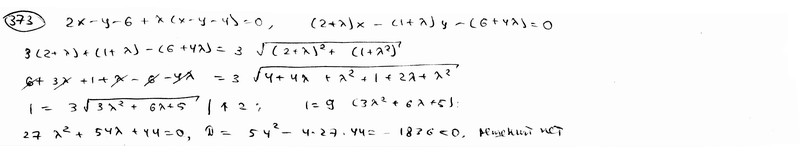 (373) 2x - y - 6 + λ(x - y - 4) = 0, (2+λ)x - (1+λ)y - (6+4λ) = 0
3(2+λ) + (1+λ) - (6+4λ) = 3 √((2+λ)² + (1+λ²)
6 + 3λ + 1 + λ - 6 - 4λ = 3 √(4+4λ + λ² + 1 + 2λ + λ²
1 = 3√(3λ² + 6λ+5 | ↑ 2 ; 1 = 9 (3λ² + 6λ+5):
27 λ² + 54λ + 44 = 0, D = 54² - 4·27·44 = - 1836 < 0. решений нет